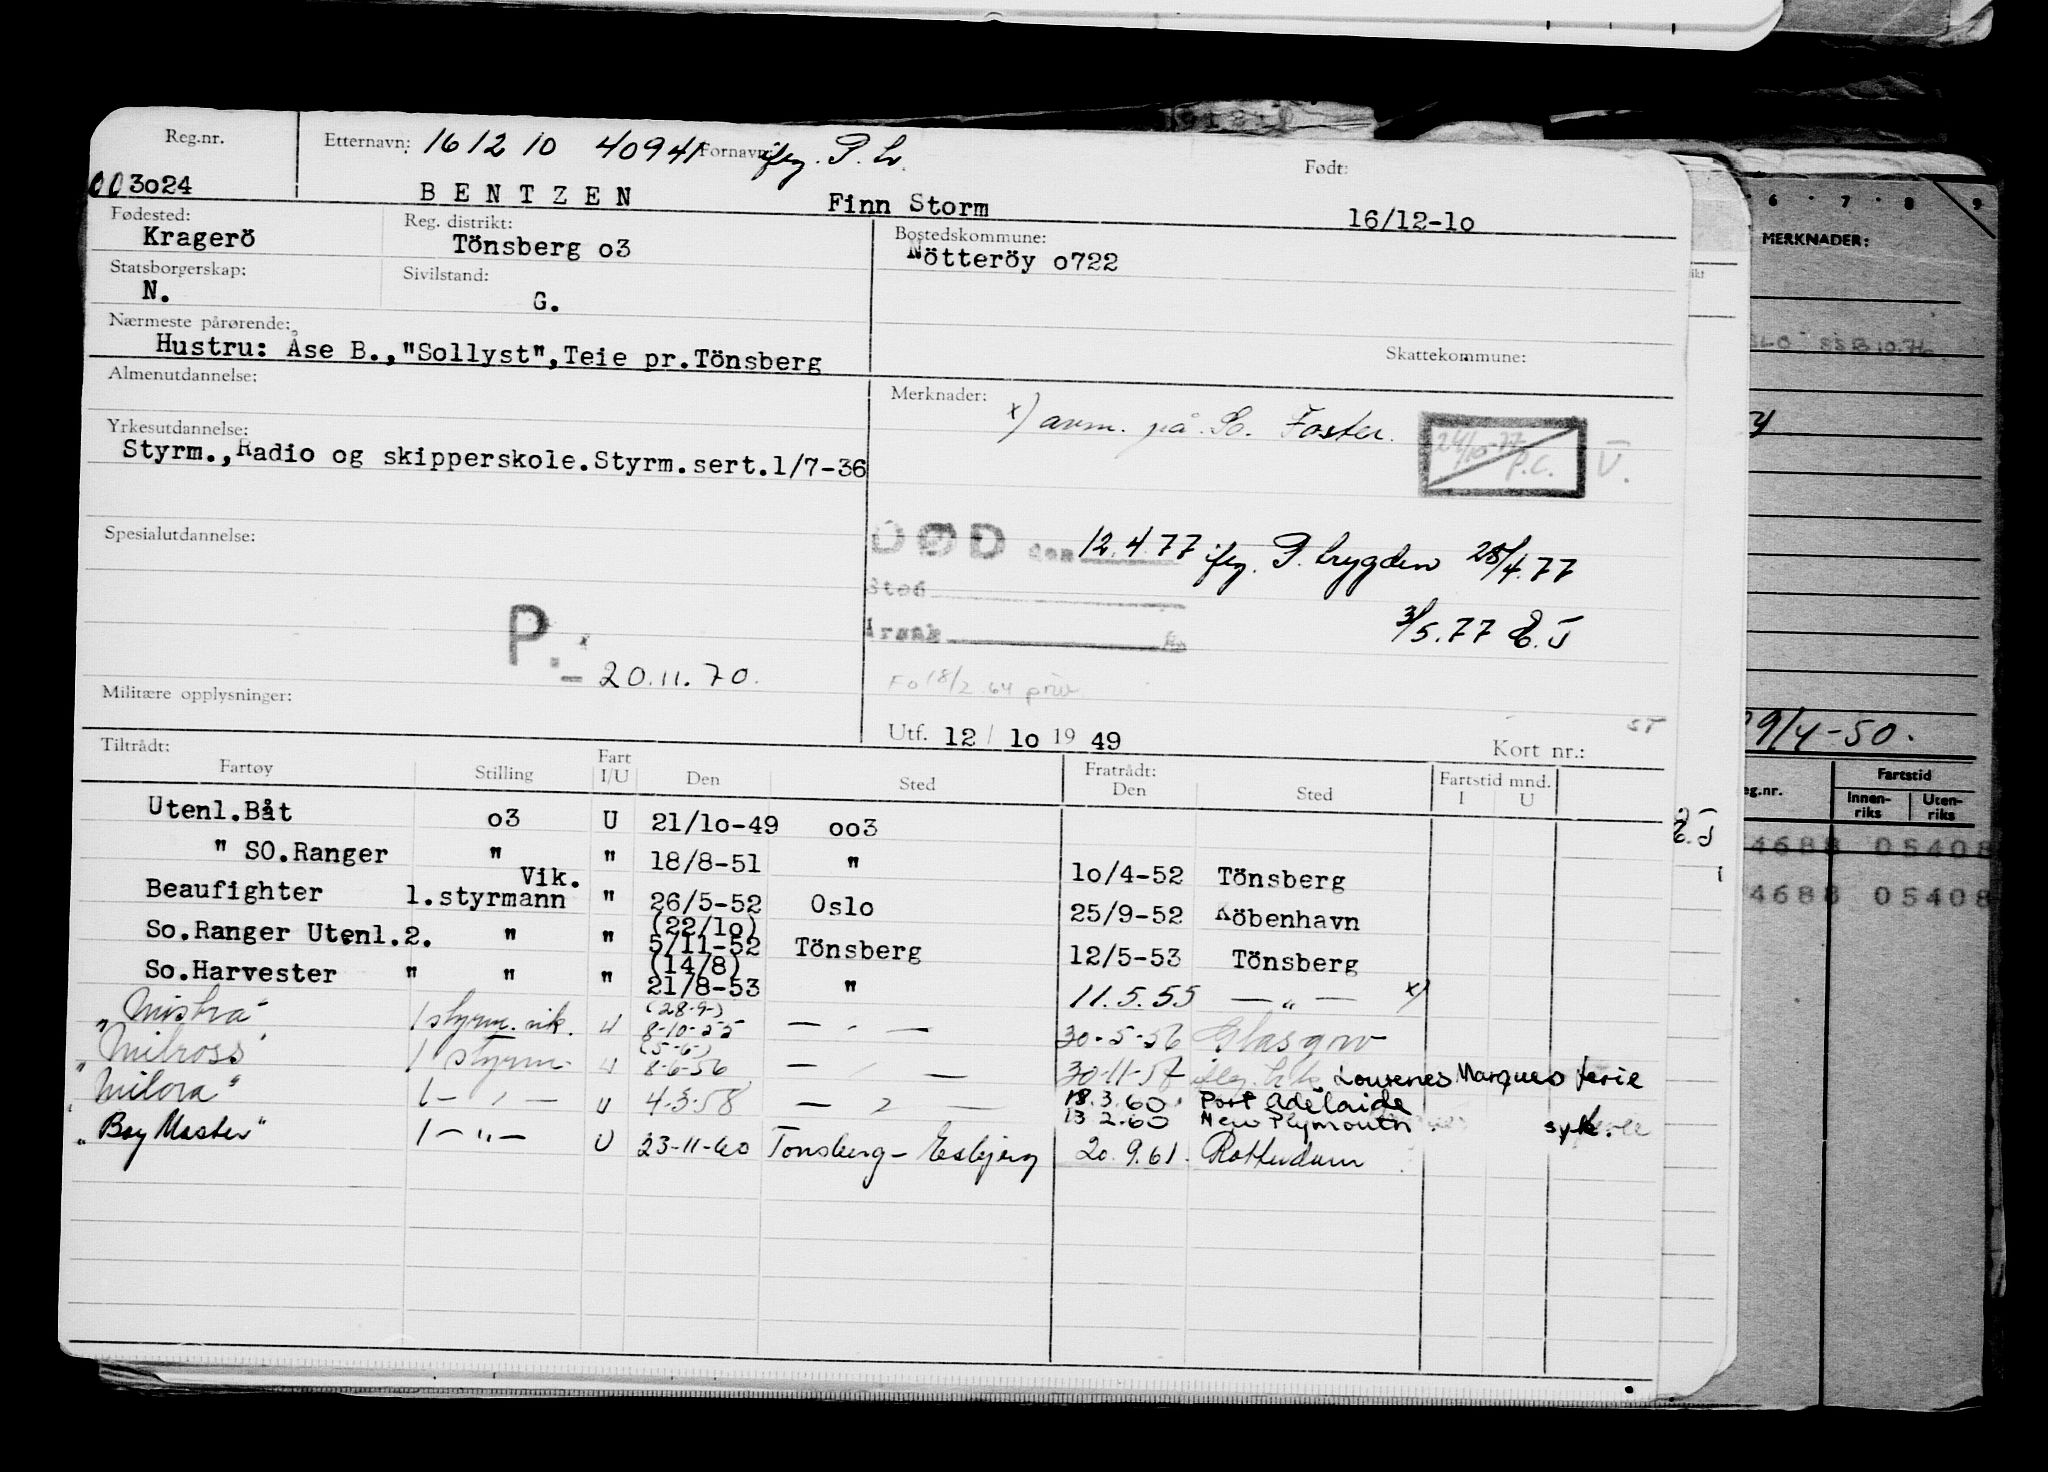 Reg.nr. Etternavn: 16 12 10 40941 Fornavn: ifлg. P. Lo. Født:
003024 BENTZEN Finn Storm 16/12-1o
Fødested: Reg. distrikt: Bostedskommune:
Kragerö Tönsberg o3 Nötteröy o722
Statsborgerskap: Sivilstand:
N. G.
Nærmeste pårørende:
Hustru: Åse B.,"Sollyst",Teie pr.Tönsberg Skattekommune:
Almenutdannelse: Merknader: x) avm. på So. Foster.
24/10-77 P.C. V.
Yrkesutdannelse:
Styrm.,Radio og skipperskole.Styrm.sert.1/7-36
Spesialutdannelse: DØD den 12.4.77 P. Lrygden 28/4.77
Sted
Årsak 3/5.77 E.J
P. 20.11.70.
Fo 18/2.64 priv
Militære opplysninger:
Utf. 12/1o 19 49 Kort nr.: ST
Tiltrådt: Fratrådt: Fartstid mnd.
Fartøy Stilling Fart I/U Den Sted Den Sted I U
Utenl.Båt o3 U 21/1o-49 oo3
" SO.Ranger " " 18/8-51 " 1o/4-52 Tönsberg
Beaufighter Vik. 1.styrmann " 26/5-52 Oslo 25/9-52 Köbenhavn
So.Ranger Utenl.2. " " (22/1o) 5/11-52 Tönsberg 12/5-53 Tönsberg
So.Harvester " " " (14/8) 21/8-53 " 11.5.55 — " — x)
"Mistra" 1 styrm. vik. U (28-9-) 8-10-55 — " — 30-5-56 Glasgow
"Milross" 1 styrm. U (5-6-) 8-6-56 — " — 30-11-57 Lourenes Marques ferie
"Milora" 1 — " — U 4-3-58 — " — 18.3.60 Port Adelaide
13 2.60 New Plymouth syk.
"Bay Master" 1 — " — U 23-11-60 Tønsberg - Esbjerg 20.9.61. Rotterdam
6 7 8 9
MERKNADER:
83B.10.76
9/4-50.
eg.nr. Fartstid
Innen-riks Uten-riks
E.J
4688 05408
4688 05408